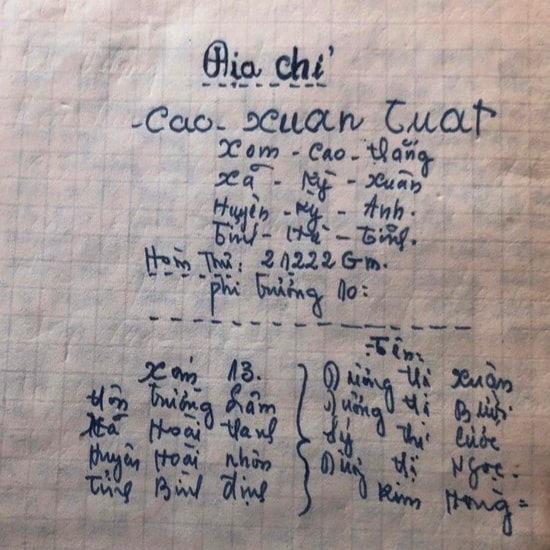 Địa chỉ
-Cao-Xuân Tuất
Xóm-Cao-Thắng
Xã-Kỳ-Xuân
Huyện-Kỳ-Anh.
Tỉnh-Hà-Tĩnh.
Hòm Thư: 21222Gm.
phi trường 10:
Tên:
Xóm 13.
thôn trường Lâm
Xã Hoài thanh
Huyện Hoài nhơn
Tỉnh Bình định
thị Xuân
thị
thị Cước
thị Ngọc:
Kim Hồng=